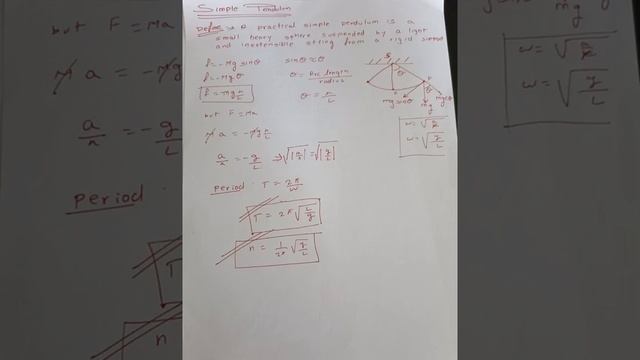 Simple Pendulum
Define → A practical simple pendulum is a
small heavy sphere suspended by a light
and inextensible string from a rigid support
f = -mg sinθ sinθ ≈ θ
f = -mgθ θ = Arc length / radius
f = -mg x/L θ = x/L
but F = Ma
M a = -Mg x/L
a/x = -g/L → √|a/x| = √|g/L|
Period T = 2π/ω
T = 2π √L/g
n = 1/2π √g/L
S
θ
P
mg sinθ
mg
mg cosθ
ω = √a/x
ω = √g/L